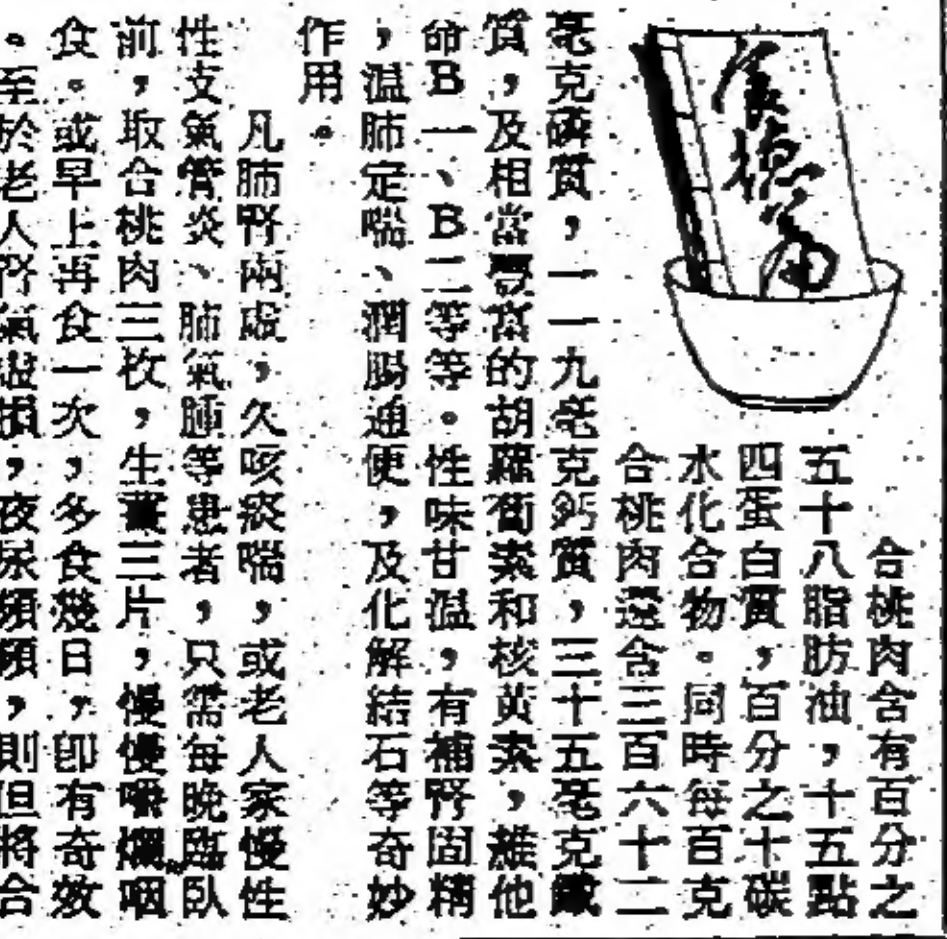 食德篇
合桃肉含有百分之
五十八脂肪油，十五點
四蛋白質，百分之十碳
水化合物。同時每百克
合桃肉還含三百六十二
毫克磷質，一一九毫克鈣質，三十五毫克鐵
質，及相當豐富的胡蘿蔔素和核黃素，維他
命B一、B二等等。性味甘溫，有補腎固精
，溫肺定喘、潤腸通便，及化解結石等奇妙
作用。
凡肺腎兩虛，久咳痰喘，或老人家慢性
性支氣管炎、肺氣腫等患者，只需每晚臨臥
前，取合桃肉三枚，生薑三片，慢慢嚼爛咽
食。或早上再食一次，多食幾日，即有奇效
。至於老人腎氣虛損，夜尿頻頻，則但將合